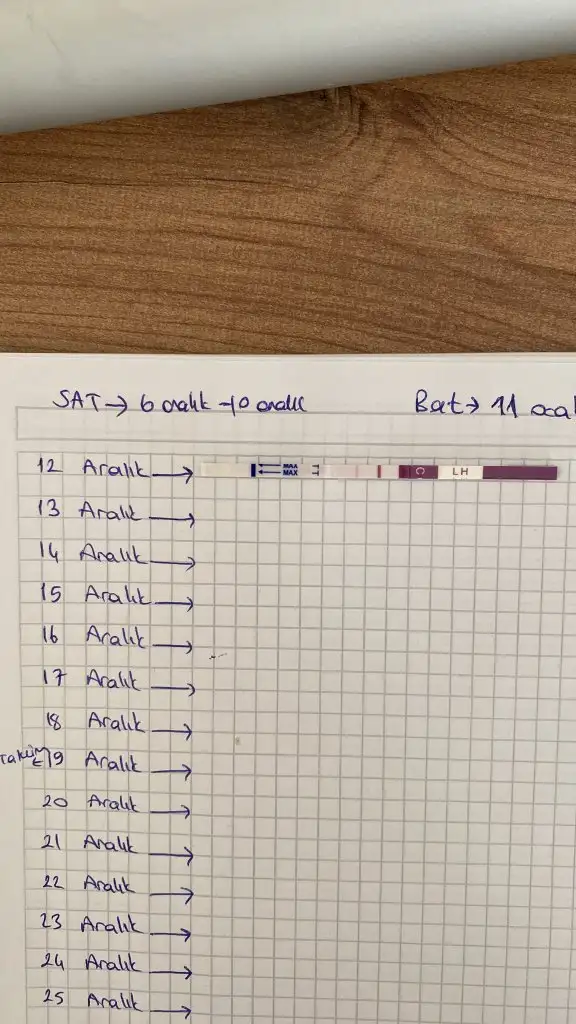 SAT → 6 aralık - 10 aralık Bat → 11 oca
12 Aralık → MAX MAX T C LH
13 Aralık →
14 Aralık →
15 Aralık →
16 Aralık →
17 Aralık →
18 Aralık →
19 Aralık →
20 Aralık →
21 Aralık →
22 Aralık →
23 Aralık →
24 Aralık →
25 Aralık →